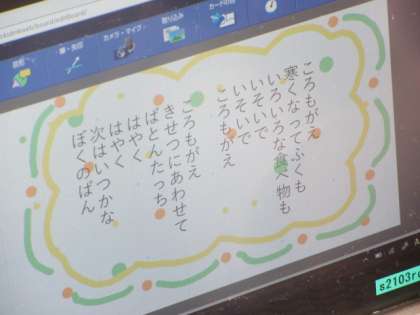 カメラ・マイク
取り込み
カードの
ころもがえ
寒くなってふくも
いろいろな食べ物も
いそいで
いそいで
ころもがえ
ころもがえ
きせつにあわせて
ばとんたっち
はやく
はやく
次はいつかな
ぼくのばん
s2103re